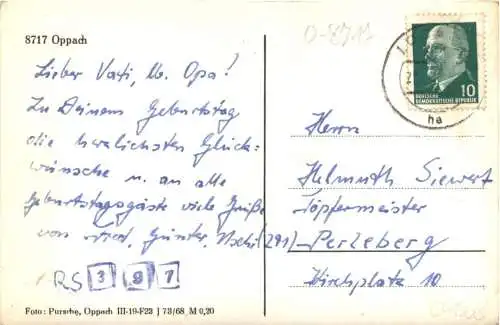 8717 Oppach
Lieber Vati, lb. Opa!
Zu Deinem Geburtstag
die herzlichsten Glück-
wünsche u. an alle
Geburtstagsgäste viele Grüße
von Günter, (291)
RS 397
Foto: Pursche, Oppach III-19-F23 J 73/68 M 0,20
10
DEUTSCHE
DEMOKRATISCHE REPUBLIK
ha
Herrn
Helmuth Siewert
Töpfermeister
Perleberg
Kirchplatz 10